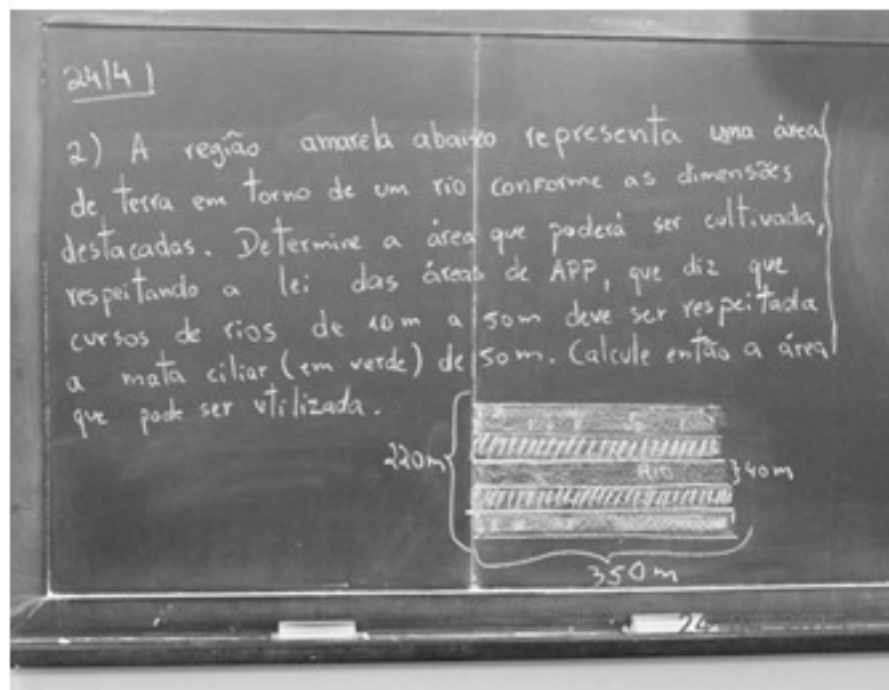 24/4
2) A região amarela abaixo representa uma área
de terra em torno de um rio conforme as dimensões
destacadas. Determine a área que poderá ser cultivada,
respeitando a lei das áreas de APP, que diz que
cursos de rios de 10m a 50m deve ser respeitada
a mata ciliar (em verde) de 50m. Calcule então a área
que pode ser utilizada.
220m
RIO
40m
350m
24